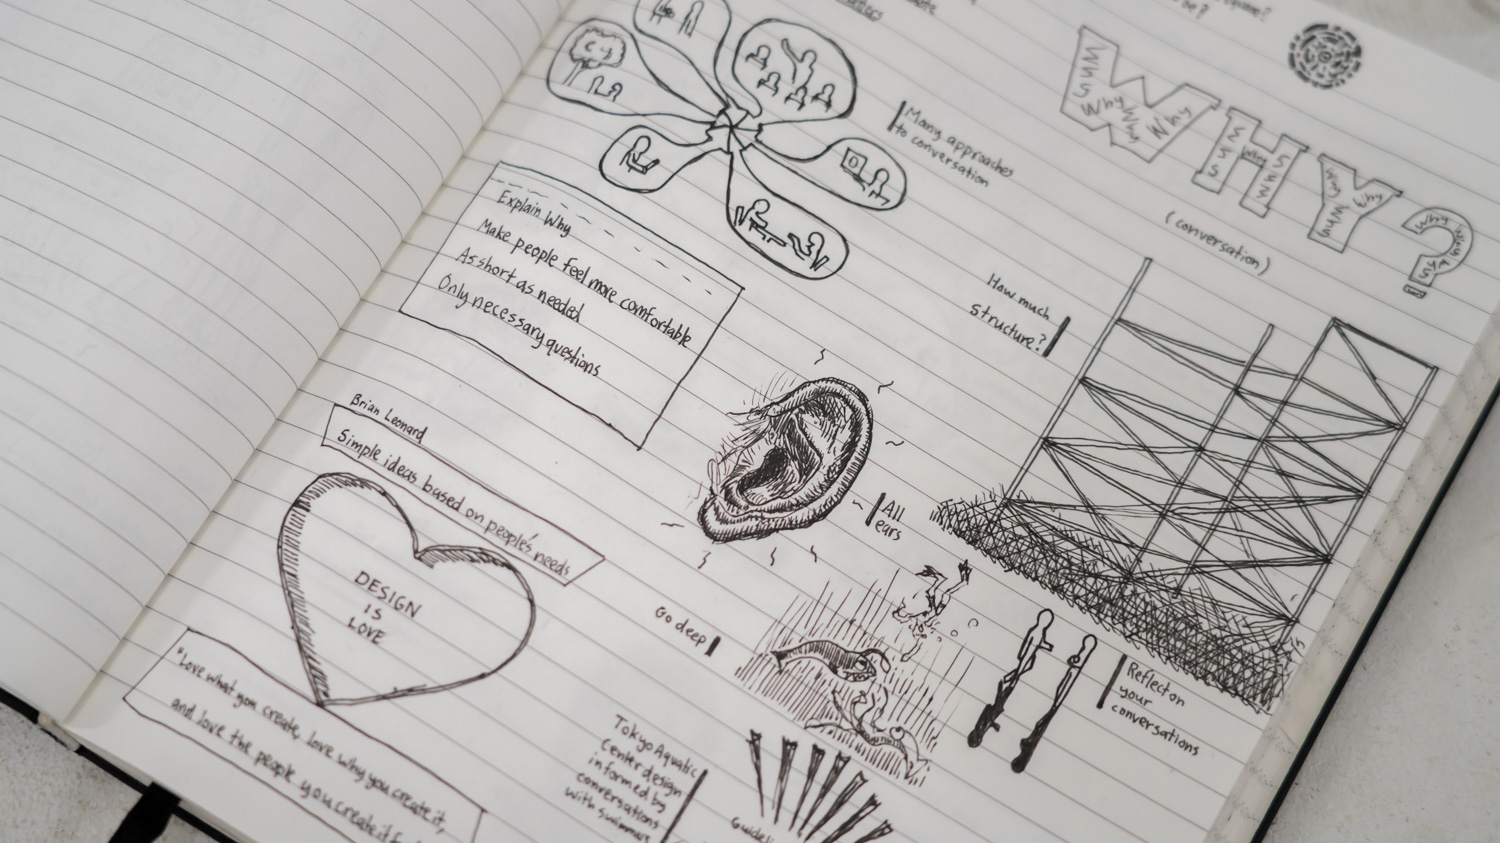 be?
Many approaches
to conversation
WHY?
Why Why Why
(conversation)
How much
structure?
Explain Why
Make people feel more comfortable
As short as needed
Only necessary questions
All
ears
Brian Leonard
Simple ideas based on people's needs
DESIGN
IS
LOVE
Go deep
Reflect on
your
conversations
"Love what you create, love why you create it,
and love the people you create it
Tokyo Aquatic
Center design
informed by
conversations
with swimmers